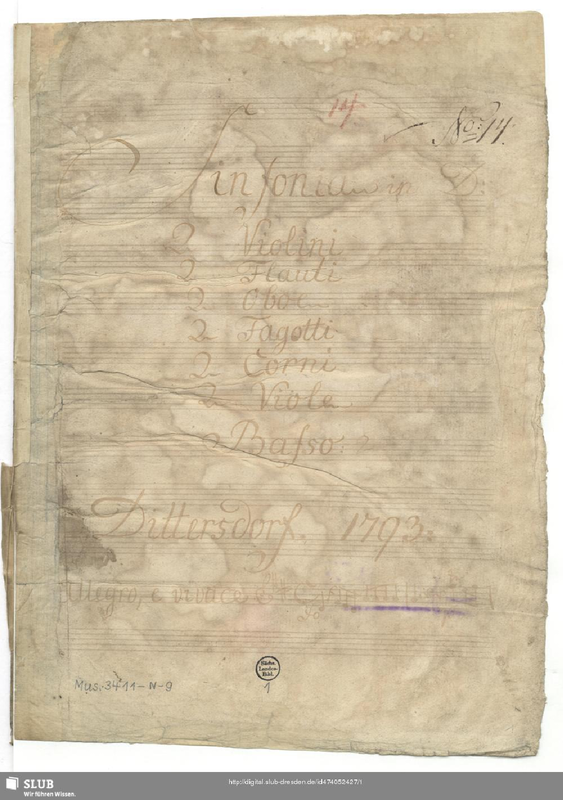 14
No: 14.
Sinfonia in D:
2 Violini
2 Flauti
2 Oboe
2 Fagotti
2 Corni
2 Viole
Basso:
Dittersdorf. 1793.
Allegro, e vivace
Sächs.
Landes-
Bibl.
Mus. 3411-N-9
1
SLUB
Wir führen Wissen.
http://digital.slub-dresden.de/id474052427/1